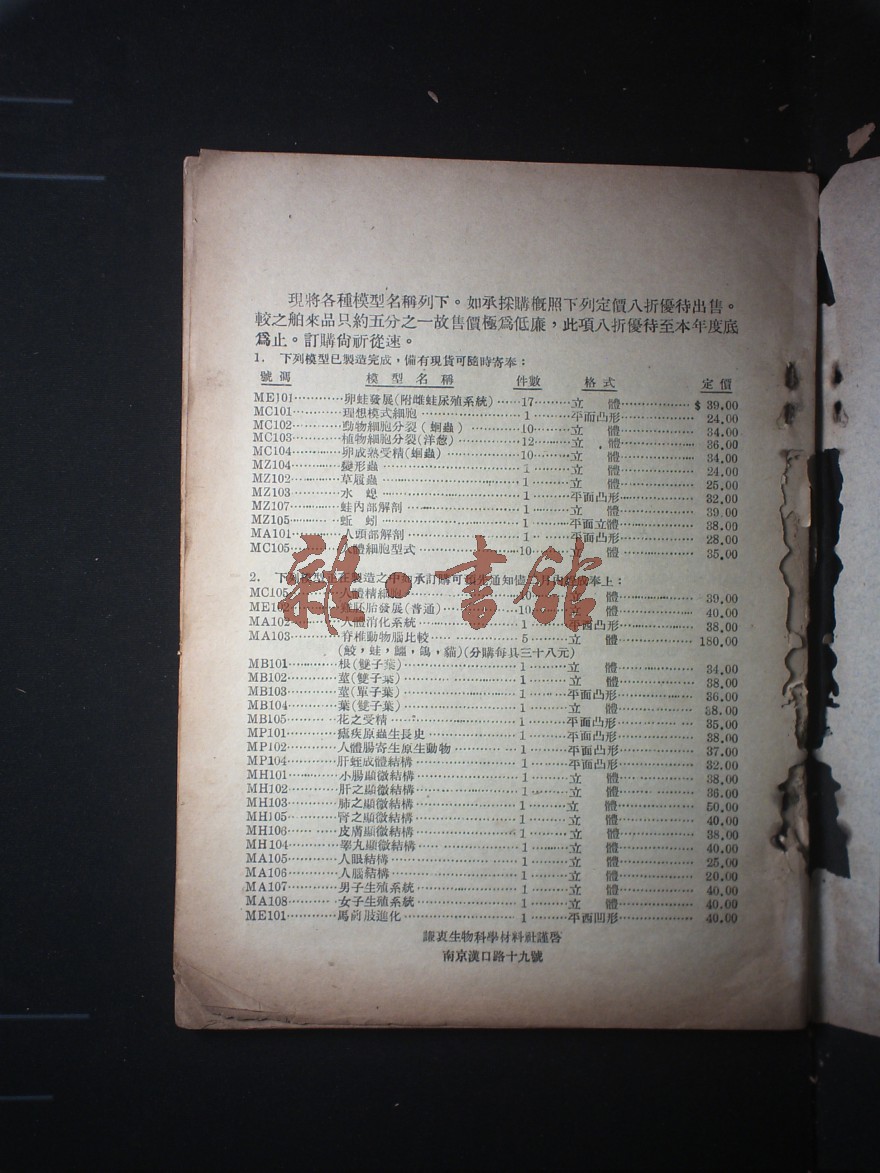 現將各種模型名稱列下。如承採購概照下列定價八折優待出售。
較之舶來品只約五分之一故售價極爲低廉，此項八折優待至本年度底
爲止。訂購尙祈從速。
1. 下列模型已製造完成，備有現貨可隨時寄奉：
號碼 模型名稱 件數 格式 定價
ME101 卵蛙發展(附雌蛙尿殖系統) 17 立體 $39.00
MC101 理想模式細胞 1 平面凸形 24.00
MC102 動物細胞分裂(蛔蟲) 10 立體 34.00
MC103 植物細胞分裂(洋葱) 12 立體 36.00
MC104 卵成熟受精(蛔蟲) 10 立體 34.00
MZ104 變形蟲 1 立體 24.00
MZ102 草履蟲 1 立體 25.00
MZ103 水螅 1 平面凸形 32.00
MZ107 蛙內部解剖 1 立體 39.00
MZ105 蚯蚓 1 平面立體 38.00
MA101 人頭部解剖 1 平面凸形 28.00
MC105 人體細胞型式 10 立體 35.00
2. 下列模型正在製造之中如承訂購可預先通知儘二月內完成奉上：
MC105 人體精細胞 10 立體 39.00
ME102 雞胚胎發展(普通) 10 立體 40.00
MA102 人體消化系統 1 平西凸形 38.00
MA103 脊椎動物腦比較 5 立體 180.00
(鮫，蛙，鱷，鴿，貓)(分購每具三十八元)
MB101 根(雙子葉) 1 立體 34.00
MB102 莖(雙子葉) 1 立體 38.00
MB103 莖(單子葉) 1 平面凸形 36.00
MB104 葉(雙子葉) 1 立體 38.00
MB105 花之受精 1 平面凸形 35.00
MP101 瘧疾原蟲生長史 1 平面凸形 38.00
MP102 人體腸寄生原生動物 1 平面凸形 37.00
MP104 肝蛭成體結構 1 平面凸形 32.00
MH101 小腸顯微結構 1 立體 38.00
MH102 肝之顯微結構 1 立體 36.00
MH103 肺之顯微結構 1 立體 50.00
MH105 腎之顯微結構 1 立體 40.00
MH106 皮膚顯微結構 1 立體 38.00
MH104 睾丸顯微結構 1 立體 40.00
MA105 人眼結構 1 立體 25.00
MA106 人腦結構 1 立體 20.00
MA107 男子生殖系統 1 立體 40.00
MA108 女子生殖系統 1 立體 40.00
ME101 馬前肢進化 1 平西凹形 40.00
謙衷生物科學材料社謹啓
南京漢口路十九號
雜·書館